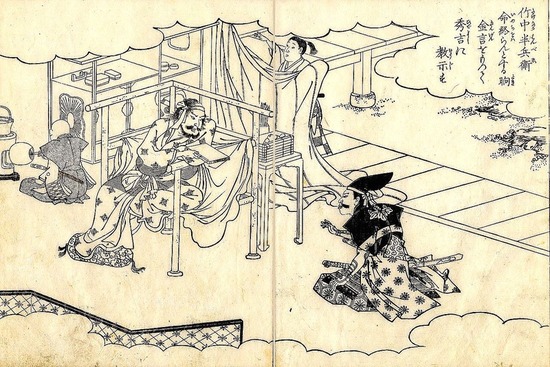 竹中半兵衛
命終らんとする時
金言をのべて
秀吉に
教示す